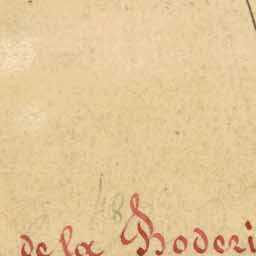 48
de la Boderi